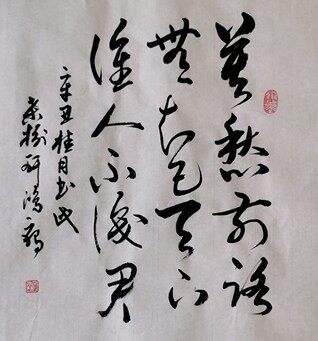 莫愁前路
無知己天下
誰人不識君
辛丑桂月書此